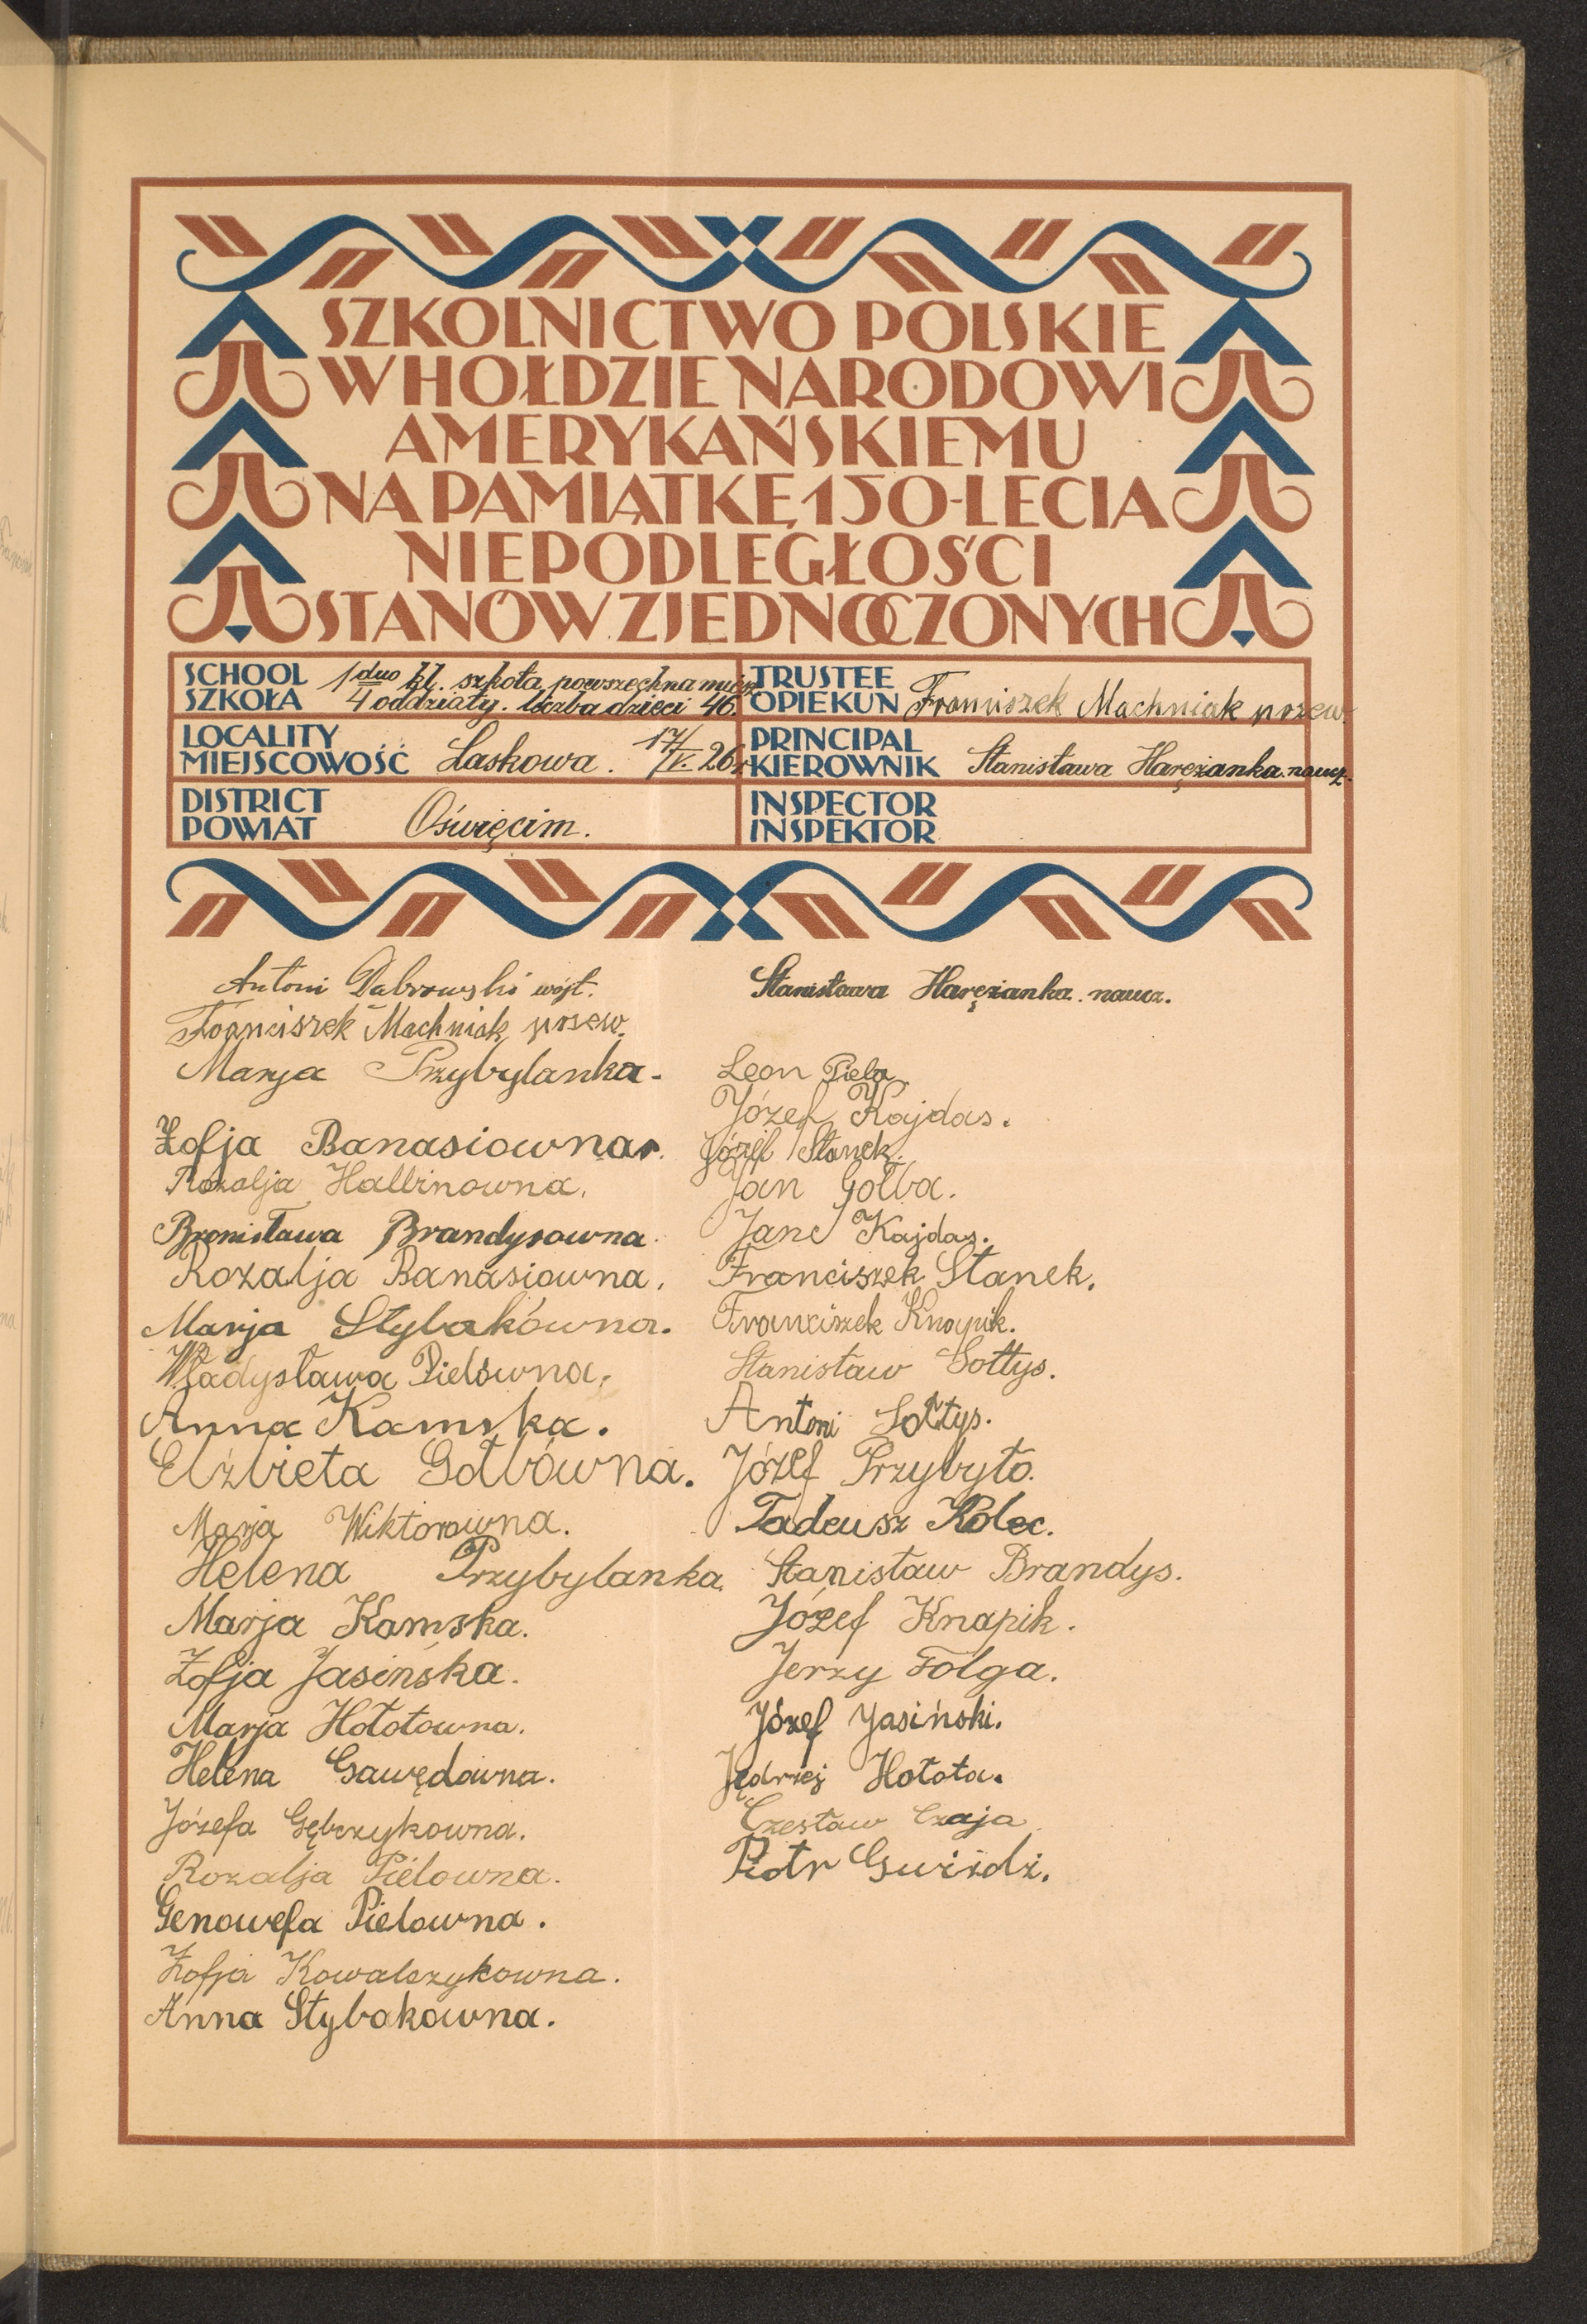 SZKOLNICTWO POLSKIE
W HOŁDZIE NARODOWI
AMERYKAŃSKIEMU
NA PAMIĄTKĘ 150-LECIA
NIEPODLEGŁOŚCI
STANÓW ZJEDNOCZONYCH
SCHOOL
SZKOŁA
1 dno kl. szkoła powszechna miesz.
4 oddziały. liczba dzieci 46.
TRUSTEE
OPIEKUN
Franciszek Machniak przew.
LOCALITY
MIEJSCOWOŚĆ
Laskowa. 17/V. 26r
PRINCIPAL
KIEROWNIK
Stanisława Haręzianka naucz.
DISTRICT
POWIAT
Oświęcim.
INSPECTOR
INSPEKTOR
Antoni Dąbrowski wójt.
Franciszek Machniak przew.
Marya Przybylanka.
Zofja Banasiowna.
Rozalja Halbinowna.
Bronisława Brandysowna
Rozalja Banasiowna.
Marja Stybakówna.
Władysława Pielówna.
Anna Kamska.
Elżbieta Gołbówna.
Marja Wiktorowna.
Helena Przybylanka.
Marja Kamska.
Zofja Jasińska.
Marja Hołotowna.
Helena Gawędowna.
Józefa Gębczykowna.
Rozalja Pielowna.
Genowefa Pielowna.
Zofja Kowalczykowna.
Anna Stybakowna.
Stanisława Haręzianka. naucz.
Leon Piela
Józef Kajdas.
Józef Stanek.
Jan Gołba.
Jan Kajdas.
Franciszek Stanek.
Franciszek Knapik.
Stanisław Sołtys.
Antoni Sołtys.
Józef Przybyło.
Tadeusz Kolec.
Stanisław Brandys.
Józef Knapik.
Jerzy Folga.
Józef Jasiński.
Jędrzej Hołota.
Czesław Czaja
Piotr Gwiżdż.